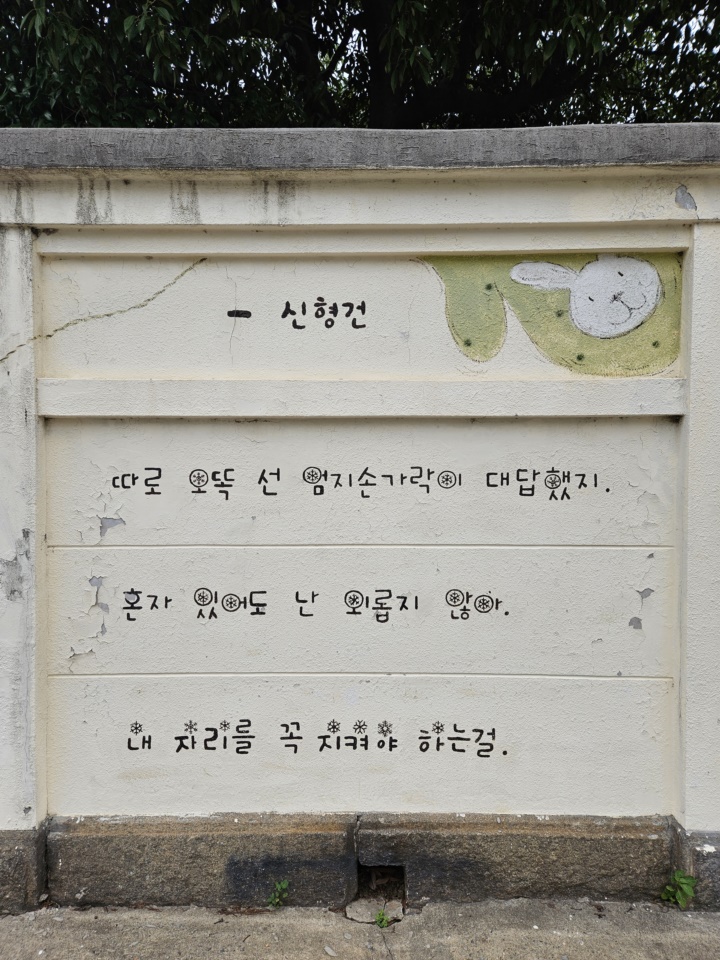 - 신형건
따로 오똑 선 엄지손가락이 대답했지.
혼자 있어도 난 외롭지 않아.
내 자리를 꼭 지켜야 하는걸.